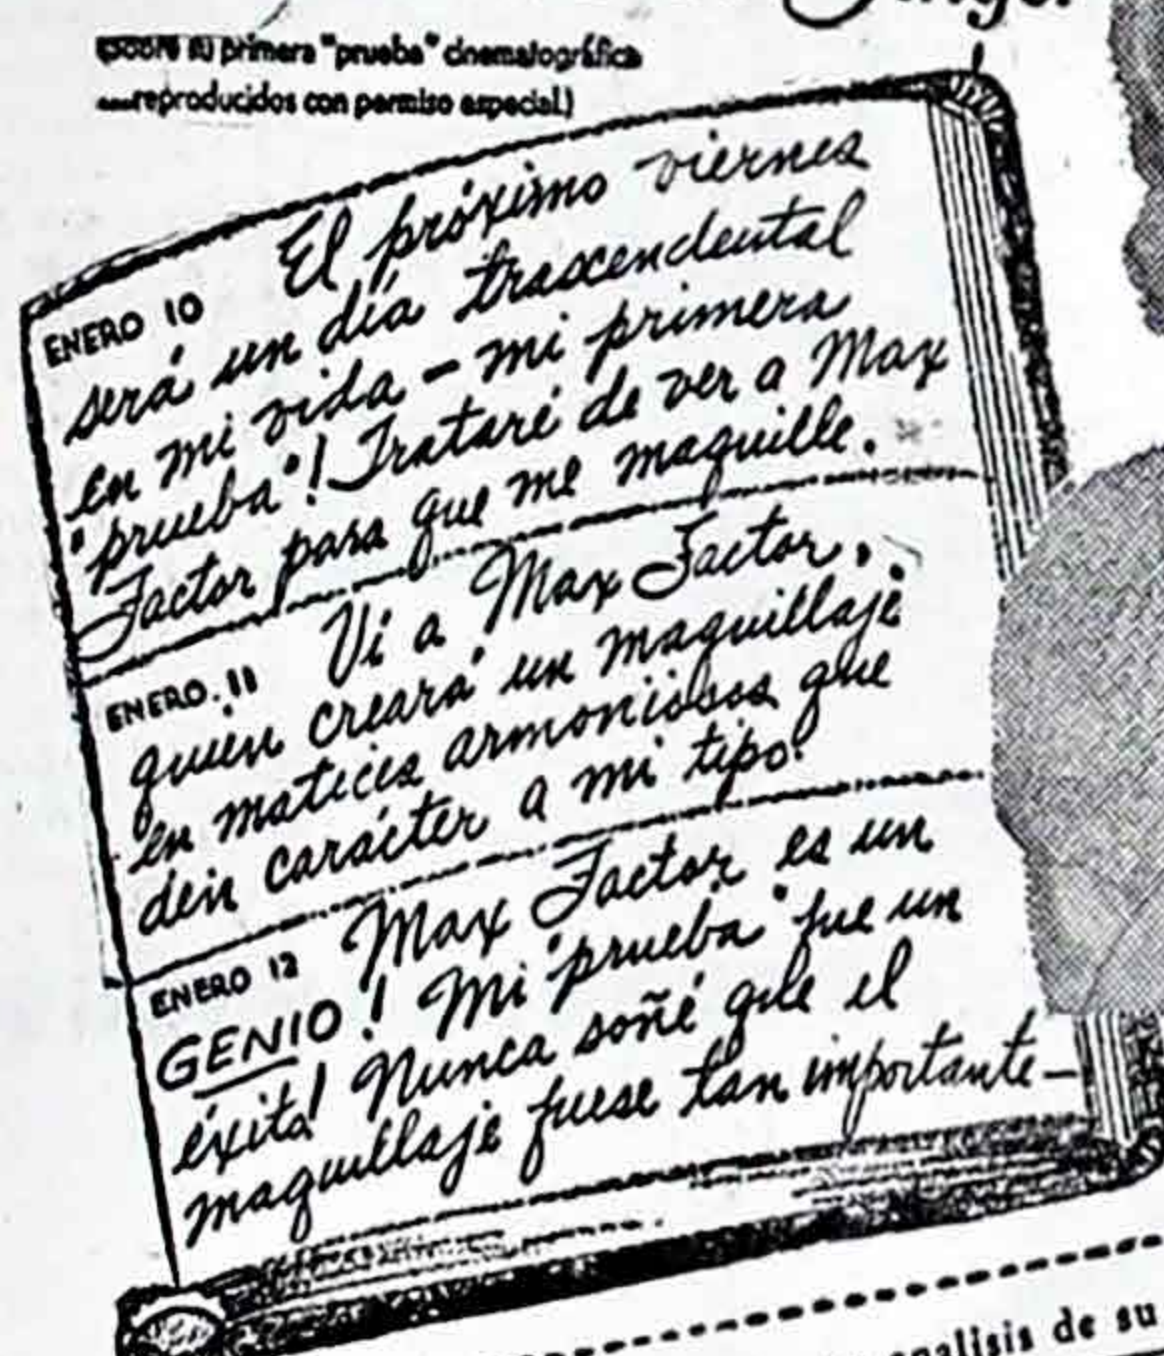 su primera "prueba" cinematográfica
...reproducidos con permiso especial.)
ENERO 10 El próximo viernes
será un día trascendental
en mi vida - mi primera
"prueba"! Trataré de ver a Max
Factor para que me maquille.
ENERO. 11 Vi a Max Factor,
quien creará un maquillaje
en matices armoniosos que
den carácter a mi tipo.
ENERO 12 Max Factor es un
GENIO! Mi "prueba" fue un
éxito! Nunca soñé que el
maquillaje fuese tan importante—
de su